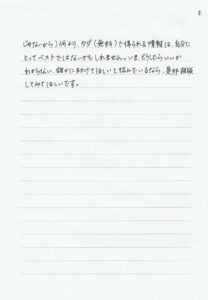 2
じゃないから)何より、タダ(無料)で得られる情報は、自分に
とってベストではないかもしれません。いま、どうしたらいいか
わからない、誰かにまかけてほしいと悩んでいるなら、是非相談
してみてほしいです。